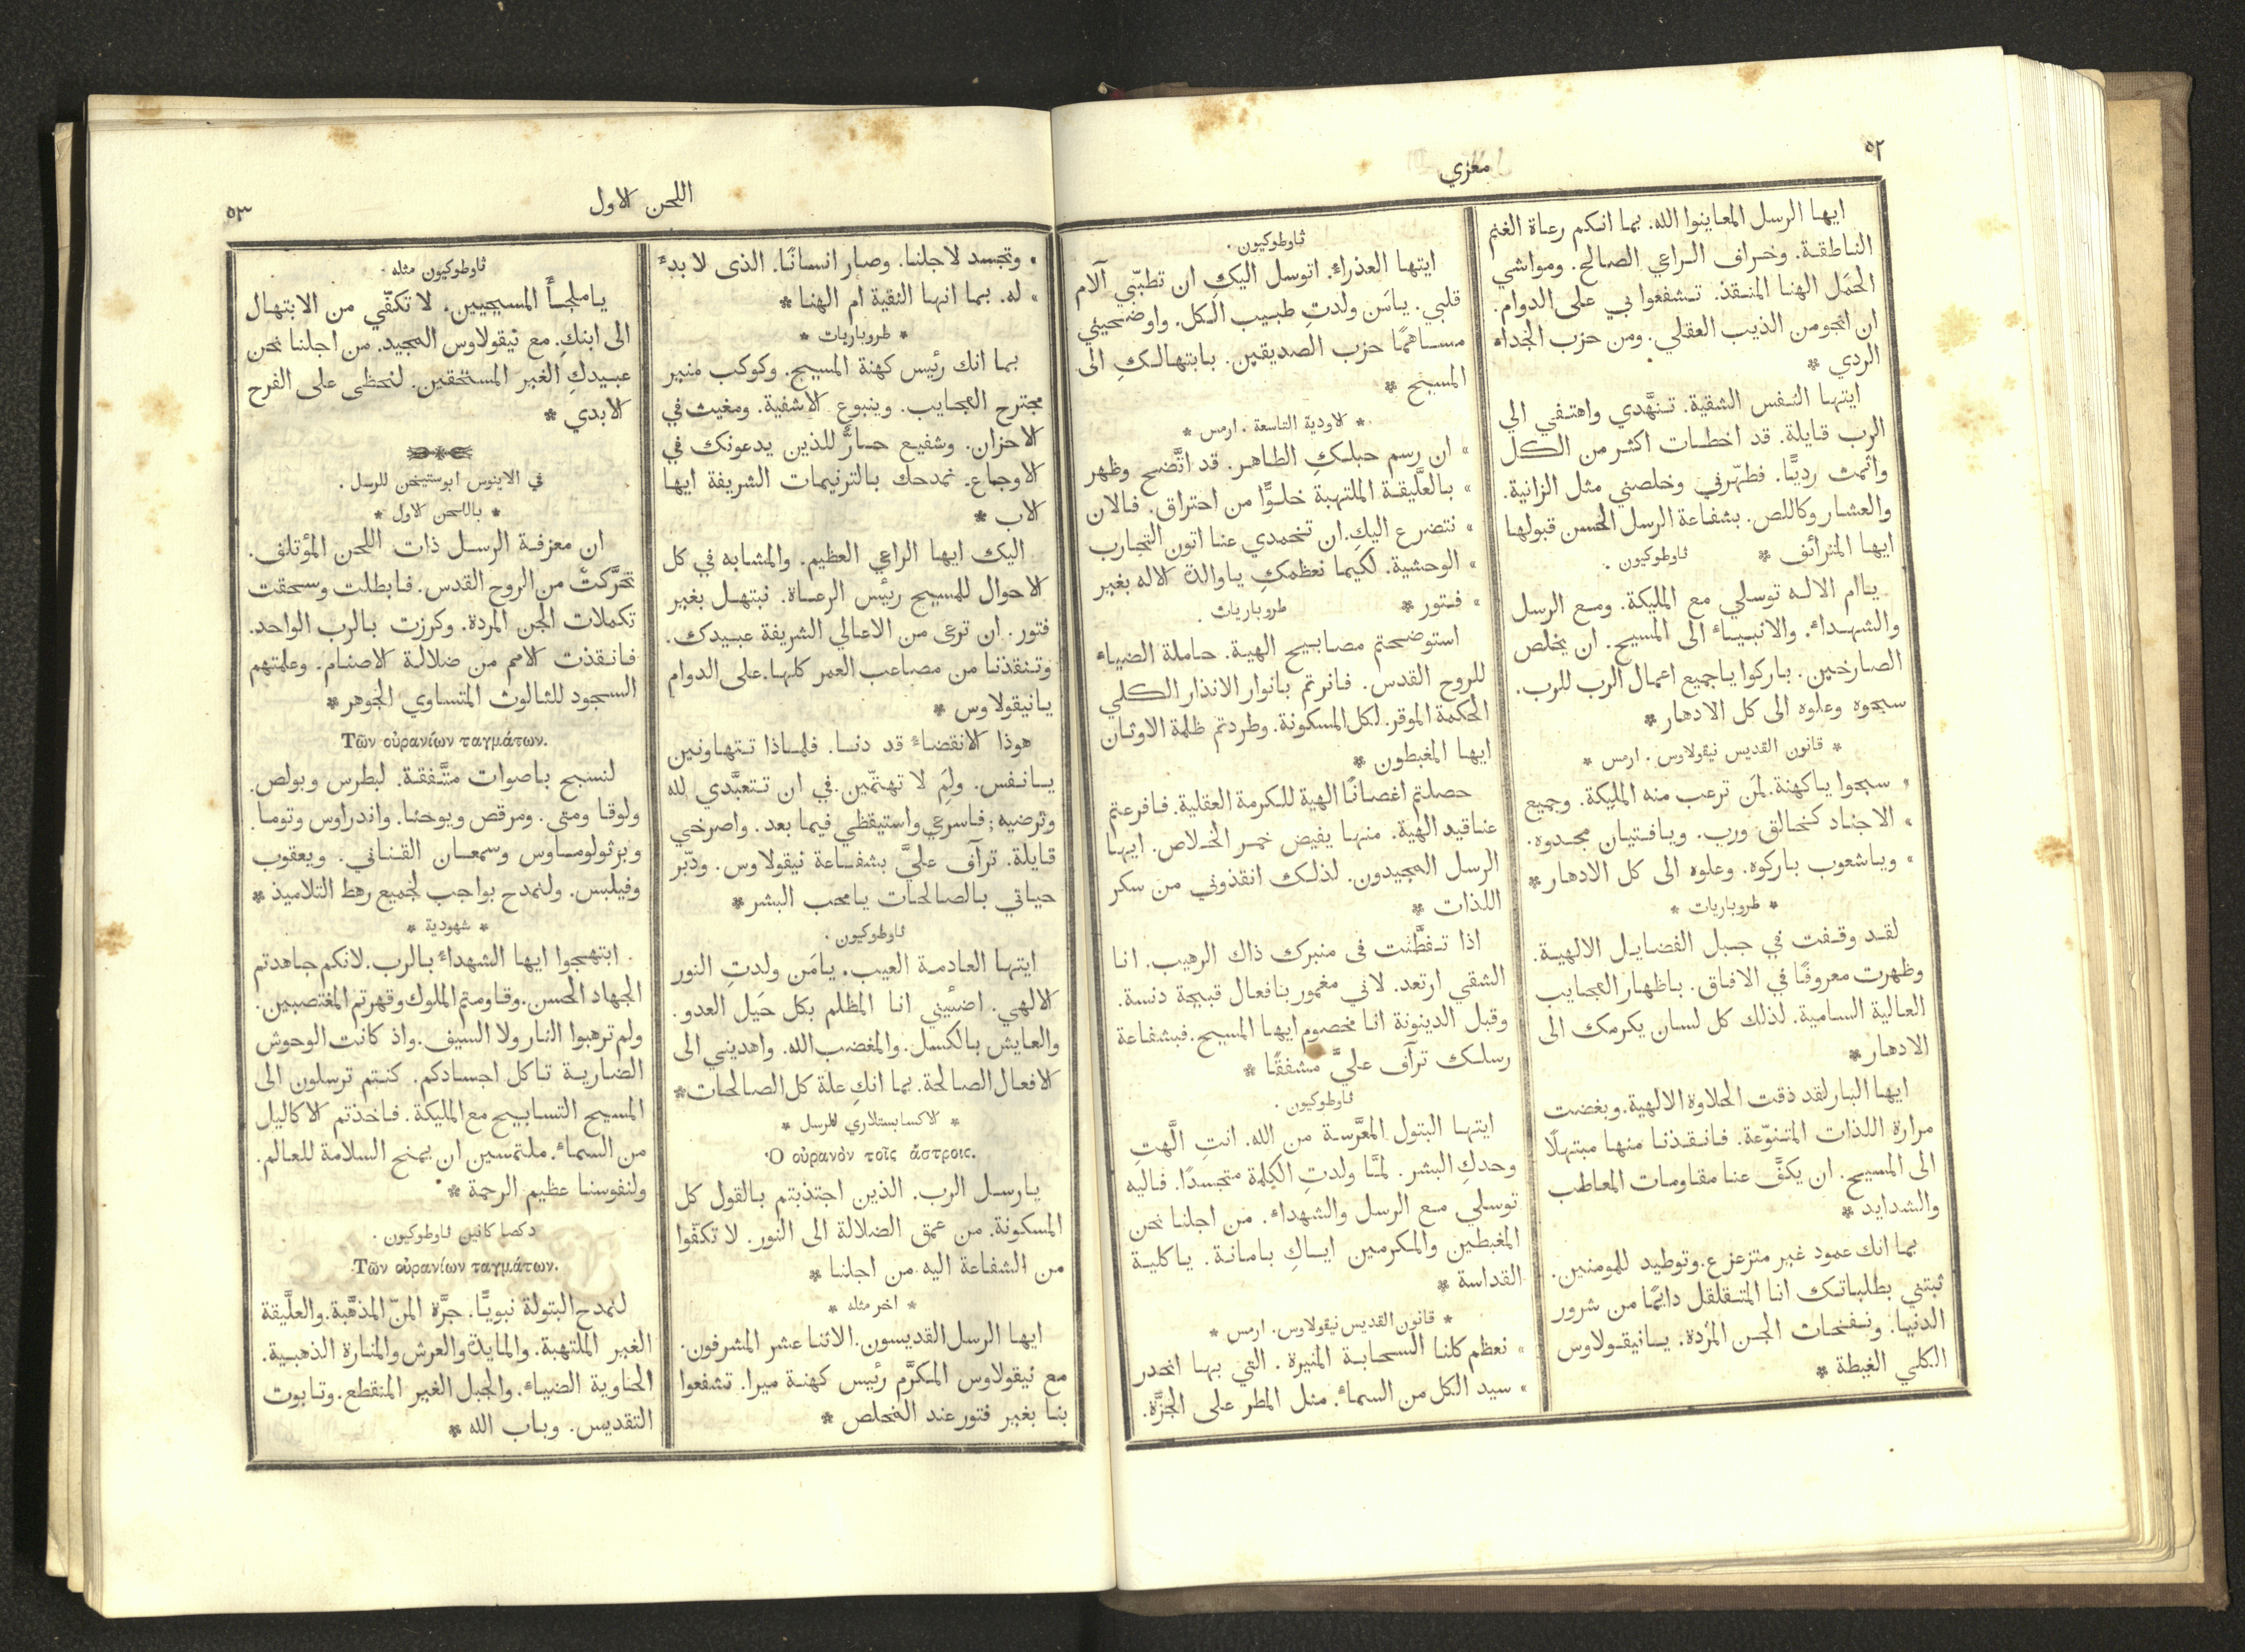 ٥٢
معزي
ايها الرسل المعاينوا الله. بما انكم رعاة الغنم
الناطقة. وخراف الراعي الصالح. ومواشي
الحَمَل الهنا المنقذ. تشفعوا بي على الدوام.
ان انجو من الذيب العقلي. ومن حزب الجداء
الردي *
ايتها النفس الشقية. تنهَّدي واهتفي الي
الرب قايلة. قد اخطات اكثر من الكل
واثمت رديًّا. فطهّرني وخلصني مثل الزانية.
والعشار وكاللص. بشفاعة الرسل الحسن قبولها
ايها المترائف * ثاوطوكيون .
ياام الاله توسلي مع المليكة. ومع الرسل
والشهداء. والانبياء الى المسيح. ان يخلص
الصارخين. باركوا ياجميع اعمال الرب للرب.
سبحوه وعلوه الى كل الادهار *
* قانون القديس نيقولاوس . ارمس *
» سبحوا ياكهنة. لمَن ترعب منه المليكة. وجميع
» الاجناد كخالق ورب. ويافتيان مجدوه.
» وياشعوب باركوه. وعلوه الى كل الادهار *
* طروباريات *
لقد وقفت في جبل الفضايل الالهية.
وظهرت معروفًا في الافاق. باظهار العجايب
العالية السامية. لذلك كل لسان يكرمك الى
الادهار *
ايها البار لقد ذقت الحلاوة الالهية. وبغضت
مرارة اللذات المتنوّعة. فانقذنا منها مبتهلًا
الى المسيح. ان يكفَّ عنا مقاومات المعاطب
والشدايد *
بما انك عمود غير متزعزع. وتوطيد للمومنين.
ثبتني بطلباتك انا المتقلقل دايمًا من شرور
الدنيا. ونفخات الجن المَرَدة. يانيقولاوس
الكلي الغبطة *
ثاوطوكيون .
ايتها العذراء. اتوسل اليكِ ان تطبّبي آلام
قلبي. يامَن ولدتِ طبيب الكل. واوضحيني
مساهمًا حزب الصديقين. بابتهالكِ الى
المسيح *
* الاودية التاسعة . ارمس *
» ان رسم حبلكِ الطاهر. قد اتَّضح وظهر
» بالعلَّيقة الملتهبة خلوًّا من احتراق. فالان
» نتضرع اليكِ. ان تخمدي عنا اتون التجارب
» الوحشية. لكيما نعظمكِ ياوالدة الاله بغير
» فتور * طروباريات .
استوضحتم مصابيح الهية. حاملة الضياء
للروح القدس. فانرتم بانوار الانذار الكلي
الحكمة الموقر. لكل المسكونة. وطردتم ظلمة الاوثان
ايها المغبطون *
حصلتم اغصانًا الهية للكرمة العقلية. فافرعتم
عناقيد الهية. منها يفيض خمر الخلاص. ايها
الرسل المجيدون. لذلك انقذوني من سكر
اللذات *
اذا تفطَّنت فى منبرك ذاك الرهيب. انا
الشقي ارتعد. لاني مغمور بافعال قبيحة دنسة.
وقبل الدينونة انا مخصوم ايها المسيح. فبشفاعة
رسلك ترآف عليَّ مشفقًا *
ثاوطوكيون .
ايتها البتول المعرَّسة من الله. انتِ الَّهتِ
وحدكِ البشر. لمَّا ولدتِ الكلمة متجسدًا. فاليه
توسلي مع الرسل والشهداء. من اجلنا نحن
المغبطين والمكرمين اياكِ بامانة. ياكلية
القداسة *
* قانون القديس نيقولاوس. ارمس *
» نعظم كلنا السحابة المنيرة . التي بها انحدر
» سيد الكل من السماء. مثل المطر على الجزَّة.
اللحن الاول
٥٣
» وتجسد لاجلنا. وصار انسانًا. الذى لا بدءَ
» له. بما انها النقية ام الهنا *
* طروباريات *
بما انك رئيس كهنة المسيح. وكوكب منير
مجترح العجايب. وينبوع الاشفية. ومغيث في
الاحزان. وشفيع حارٌّ للذين يدعونك في
الاوجاع. نمدحك بالترنيمات الشريفة ايها
الاب *
اليك ايها الراعي العظيم. والمشابه في كل
الاحوال للمسيح رئيس الرعاة. نبتهل بغير
فتور. ان ترعى من الاعالي الشريفة عبيدك.
وتنقذنا من مصاعب العمر كلها. على الدوام
يانيقولاوس *
هوذا الانقضاء قد دنا. فلماذا تتهاونين
يانفس. ولِمَ لا تهتمّين. في ان تتعبَّدي لله
وترضيه؛ فاسرعي واستيقظي فيما بعد. واصرخي
قايلة. ترآف عليَّ بشفاعة نيقولاوس. ودبّر
حياتي بالصالحات يامحب البشر *
ثاوطوكيون .
ايتها العادمة العيب. يامَن ولدتِ النور
الالهي. اضئيني انا المظلم بكل حَيَل العدو.
والعايش بالكسل. والمغضب الله. واهديني الى
الافعال الصالحة. بما انكِ علة كل الصالحات *
* الاكسابستلاري للرسل *
Ὁ οὐρανὸν τοῖς ἄστροις.
يارسل الرب. الذين اجتذبتم بالقول كل
المسكونة. من عمق الضلالة الى النور. لا تكفّوا
من الشفاعة اليه من اجلنا *
* اخر مثله *
ايها الرسل القديسون. الاثنا عشر المشرفون.
مع نيقولاوس المكرَّم رئيس كهنة ميرا. تشفعوا
بنا بغير فتور عند المخلص *
ثاوطوكيون مثله .
ياملجأَ المسيحيين. لا تكفّي من الابتهال
الى ابنكِ. مع نيقولاوس المجيد. من اجلنا نحن
عبيدكِ الغير المستحقين. لنحظى على الفرح
الابدي *
في الاينوس ابوستيخن للرسل .
* باللحن الاول *
ان معزفة الرسل ذات اللحن المؤتلف.
تحرَّكتْ من الروح القدس. فابطلت وسحقت
تكملات الجن المردة. وكرزت بالرب الواحد.
فانقذت الامم من ضلالة الاصنام. وعلمتهم
السجود للثالوث المتساوي الجوهر *
Τῶν οὐρανίων ταγμάτων.
لنسبح باصوات متَّفقة. لبطرس وبولص.
ولوقا ومتى. ومرقص ويوحنا. واندراوس وتوما.
وبرثولوماوس وسمعان القناني. ويعقوب
وفيلبس. ولنمدح بواجب لجميع رهط التلاميذ *
* شهودية *
ابتهجوا ايها الشهداء بالرب. لانكم جاهدتم
الجهاد الحسن. وقاومتم الملوك وقهرتم المغتصبين.
ولم ترهبوا النار ولا السيف. واذ كانت الوحوش
الضارية تاكل اجسادكم. كنتم ترسلون الى
المسيح التسابيح مع المليكة. فاخذتم الاكاليل
من السماء. ملتمسين ان يمنح السلامة للعالم.
ولنفوسنا عظيم الرحمة *
دكصا كانين ثاوطوكيون .
Τῶν οὐρανίων ταγμάτων.
لنمدح البتولة نبويًّا. جرَّة المنّ المذهَّبة. والعلَّيقة
الغير الملتهبة. والمايدة والعرش والمنارة الذهبية.
الحاوية الضياء. والجبل الغير المنقطع. وتابوت
التقديس. وباب الله *